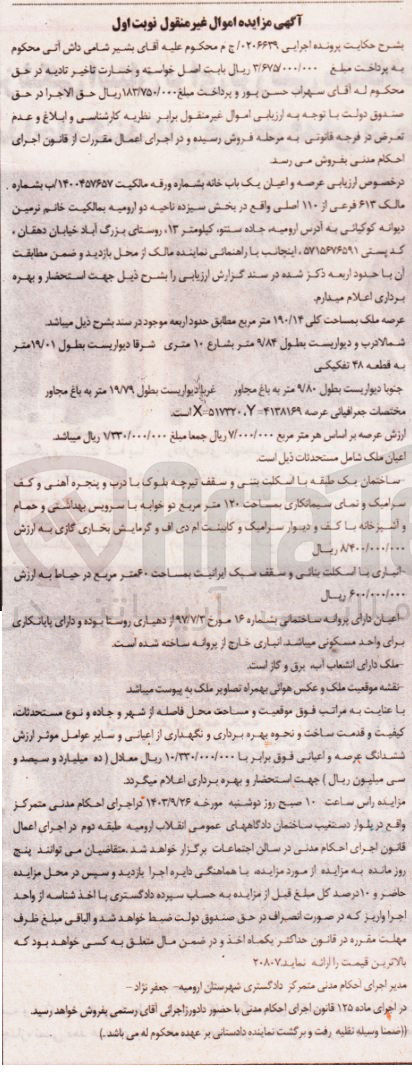 آگهی مزایده اموال غیر منقول نوبت اول
بشرح حکایت پرونده اجرایی ۰۲۰۶۶۳۹/ ج م محکوم علیه آقای بشیر شامی داش آتی محکوم
به پرداخت مبلغ ۳/۶۷۵/۰۰۰/۰۰۰ ریال بابت اصل خواسته و خسارت تاخیر تادیه در حق
محکوم له آقای سهراب حسن پور و پرداخت مبلغ۱۸۳/۷۵۰/۰۰۰ریال حق الاجرا در حق
صندوق دولت با توجه به ارزیابی اموال غیرمنقول برابر نظریه کارشناسی و ابلاغ و عدم
تعرض در فرجه قانونی به مرحله فروش رسیده و در اجرای اعمال مقررات از قانون اجرای
احکام مدنی بفروش می رسد.
درخصوص ارزیابی عرصه و اعیان یک باب خانه بشماره ورقه مالکیت ۱۴۰۰۴۵۷۶۵۷/ب بشماره
مالک ۶۱۳ فرعی از ۱۱۰ اصلی واقع در بخش سیزده ناحیه دو ارومیه بمالکیت خانم نرمین
دیوانه کوکیانی به آدرس ارومیه، جاده سنتو، کیلومتر ۱۳، روستای بزرگ آباد خیابان دهقان ،
کد پستی ۵۷۱۵۶۷۶۵۹۱ ، اینجانب با راهنمائی نماینده مالک از محل بازدید و ضمن مطابقت
آن با حدود اربعه ذکر شده در سند گزارش ارزیابی را بشرح ذیل جهت استحضار و بهره
برداری اعلام میدارم.
عرصه ملک بمساحت کلی ۱۹۰/۱۴ متر مربع مطابق حدود اربعه موجود در سند بشرح ذیل میباشد.
شمالا درب و دیواریست بطول ۹/۸۴ متر بشارع ۱۰ متری شرقا دیواریست بطول ۱۹/۰۱متر
به قطعه ۴۸ تفکیکی
جنوبا دیواریست بطول ۹/۸۰ متر به باغ مجاور غربا دیواریست بطول ۱۹/۷۹ متر به باغ مجاور
مختصات جغرافیائی عرصه X=۵۱۷۳۲۰، Y=۴۱۳۸۱۶۹ است.
ارزش عرصه بر اساس هر متر مربع ۷/۰۰۰/۰۰۰ ریال جمعا مبلغ ۱/۳۳۰/۰۰۰/۰۰۰ ریال میباشد.
اعیان ملک شامل مستحدثات ذیل است.
-ساختمان یک طبقه با اسکلت بتنی و سقف تیرچه بلوک با درب و پنجره آهنی و کف
سرامیک و نمای سیمانکاری بمساحت ۱۲۰ متر مربع دو خوابه با سرویس بهداشتی و حمام
و آشپزخانه با کف و دیوار سرامیک و کابینت ام دی اف و گرمایش بخاری گازی به ارزش
۸/۴۰۰/۰۰۰/۰۰۰ ریال
-انباری با اسکلت بنائی و سقف سبک ایرانیت بمساحت ۶۰متر مربع در حیاط به ارزش
۶۰۰/۰۰۰/۰۰۰ ریال
-اعیان دارای پروانه ساختمانی بشماره ۱۶ مورخ ۹۷/۷/۳ از دهیاری روستا بوده و دارای پایانکاری
برای واحد مسکونی میباشد. انباری خارج از پروانه ساخته شده است.
-ملک دارای انشعاب آب، برق و گاز است.
-نقشه موقعیت ملک و عکس هوائی بهمراه تصاویر ملک به پیوست میباشد
با عنایت به مراتب فوق موقعیت و مساحت محل فاصله از شهر و جاده و نوع مستحدثات،
کیفیت و قدمت ساخت و نحوه بهره برداری و نگهداری از اعیانی و سایر عوامل موثر ارزش
ششدانگ عرصه و اعیانی فوق برابر با ۱۰/۳۳۰/۰۰۰/۰۰۰ ریال معادل ( ده میلیارد و سیصد و
سی میلیون ریال ) جهت استحضار و بهره برداری اعلام میگردد.
مزایده راس ساعت ۱۰ صبح روز دوشنبه مورخه ۱۴۰۳/۹/۲۶ دراجرای احکام مدنی متمرکز
واقع در بلوار دستغیب ساختمان دادگاههای عمومی انقلاب ارومیه طبقه دوم در اجرای اعمال
قانون اجرای احکام مدنی در سالن اجتماعات برگزار خواهد شد .متقاضیان می توانند پنج
روز مانده به مزایده از مورد مزایده، با هماهنگی دایره اجرا بازدید و سپس در محل مزایده
حاضر و ۱۰درصد کل مبلغ قبل از مزایده به حساب سپرده دادگستری با اخذ شناسه از واحد
اجرا واریز که در صورت انصراف در حق صندوق دولت ضبط خواهد شد و الباقی مبلغ ظرف
مهلت مقرره در قانون حداکثر یکماه اخذ و در ضمن مال متعلق به کسی خواهد بود که
بالاترین قیمت را ارائه نماید.۲۰۸۰۷
مدیر اجرای احکام مدنی متمرکز دادگستری شهرستان ارومیه- جعفر نژاد -
در اجرای ماده ۱۲۵ قانون اجرای احکام مدنی با حضور دادورزاجرائی آقای رستمی بفروش خواهد رسید.
((ضمنا وسیله نقلیه رفت و برگشت نماینده دادستانی بر عهده محکوم له می باشد .)